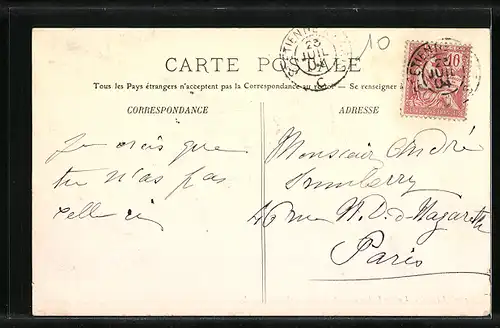 10
CARTE POSTALE
23
JUIL
04
ETIENNE
23
JUIL
04
10
Tous les Pays étrangers n'acceptent pas la Correspondance au recto — Se renseigner à
CORRESPONDANCE
ADRESSE
Je crois que
tu n'as pas
celle ci
Monsieur André
46 rue N. D. d. Nazareth
Paris